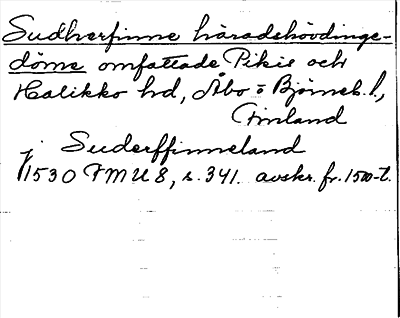 Sudherfinne häradshövdinge-
döme omfattade Pikie och
Halikko hd, Åbo o Björneb. l,
Finland
j Suderffinneland
1530 FMU 8, s. 341. avskr. fr. 1500-t.